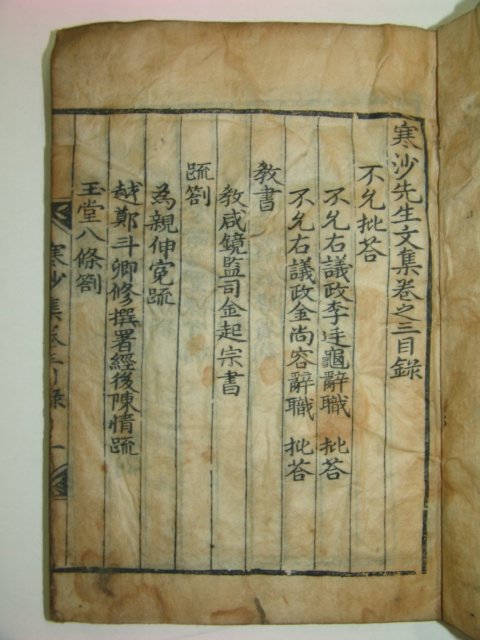 寒沙先生文集卷之三目錄
不允批荅
不允右議政李廷龜辭職 批荅
不允右議政金尚容辭職 批荅
敎書
敎咸鏡監司金起宗書
疏劄
為親伸寃疏
越鄭斗卿修撰署經後陳情疏
玉堂八條劄
寒沙集卷三目錄 一